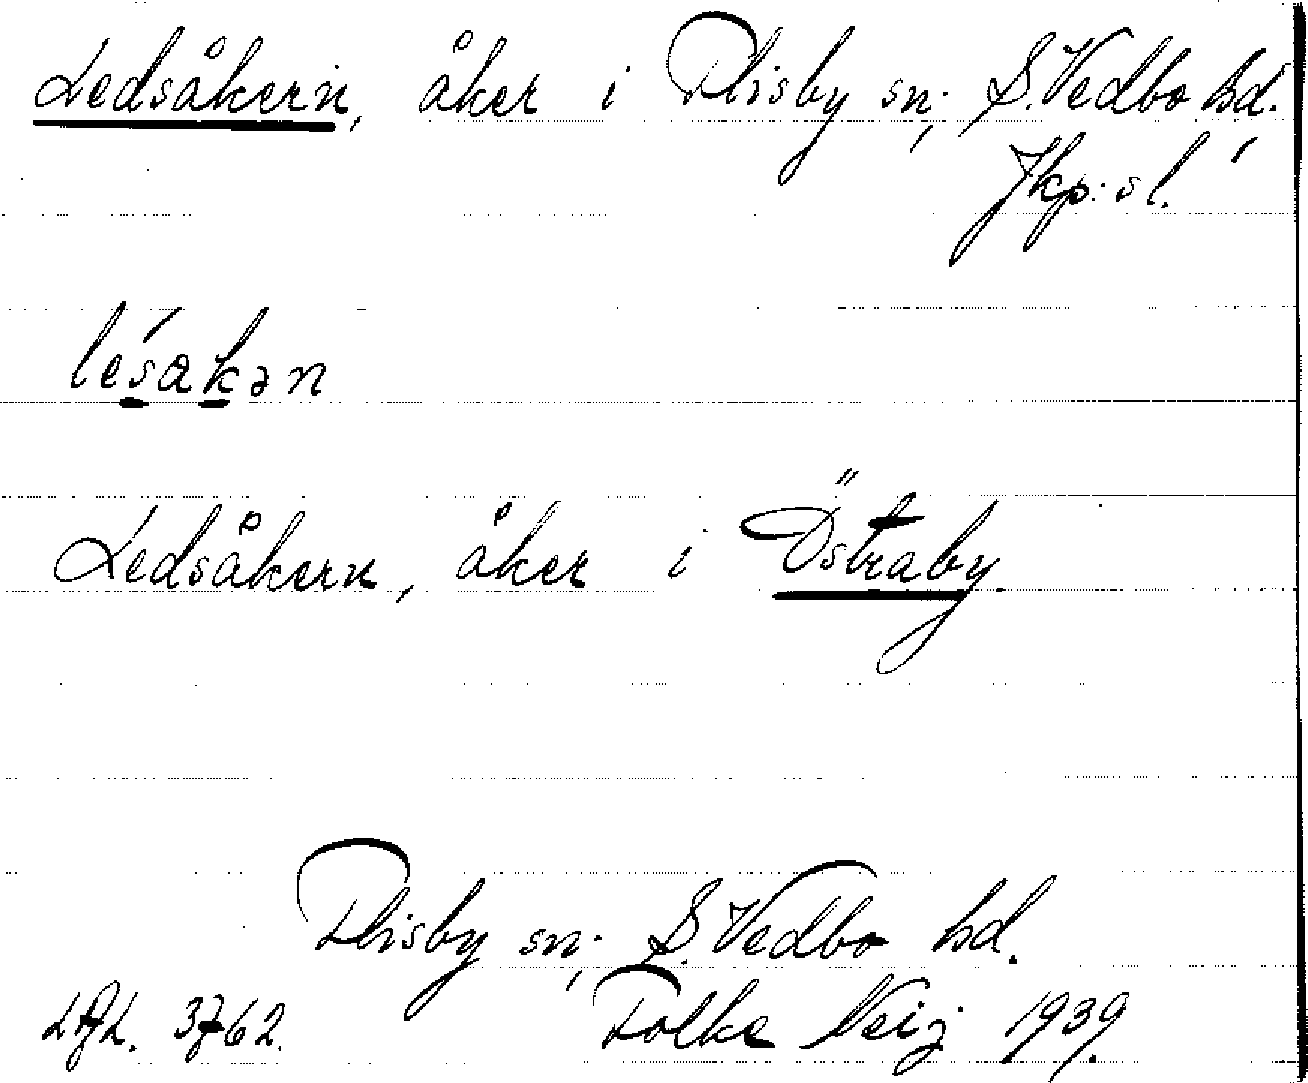 Ledsåkern, åker i Flisby sn; S. Vedbo hd.
Jkp:s l.
lésakən
Ledsåkern, åker i Östraby
Flisby sn; S. Vedbo hd.
3762. Folke Neij 1939.